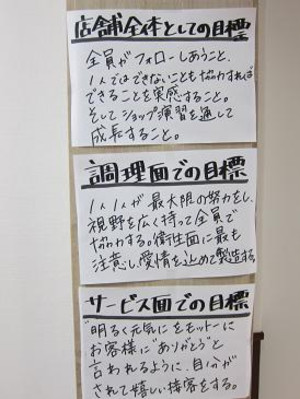 店舗全体としての目標
全員がフォローしあうこと、
1人ではできないことも協力すれば
できることを実感すること。
そしてショップ演習を通して
成長すること。
調理面での目標
1人1人が最大限の努力をし、
視野を広く持って全員で
協力する。衛生面に最も
注意し、愛情を込めて製造する。
サービス面での目標
"明るく元気に"をモットーに
お客様に"ありがとう"と
言われるように、自分が
されて嬉しい接客をする。